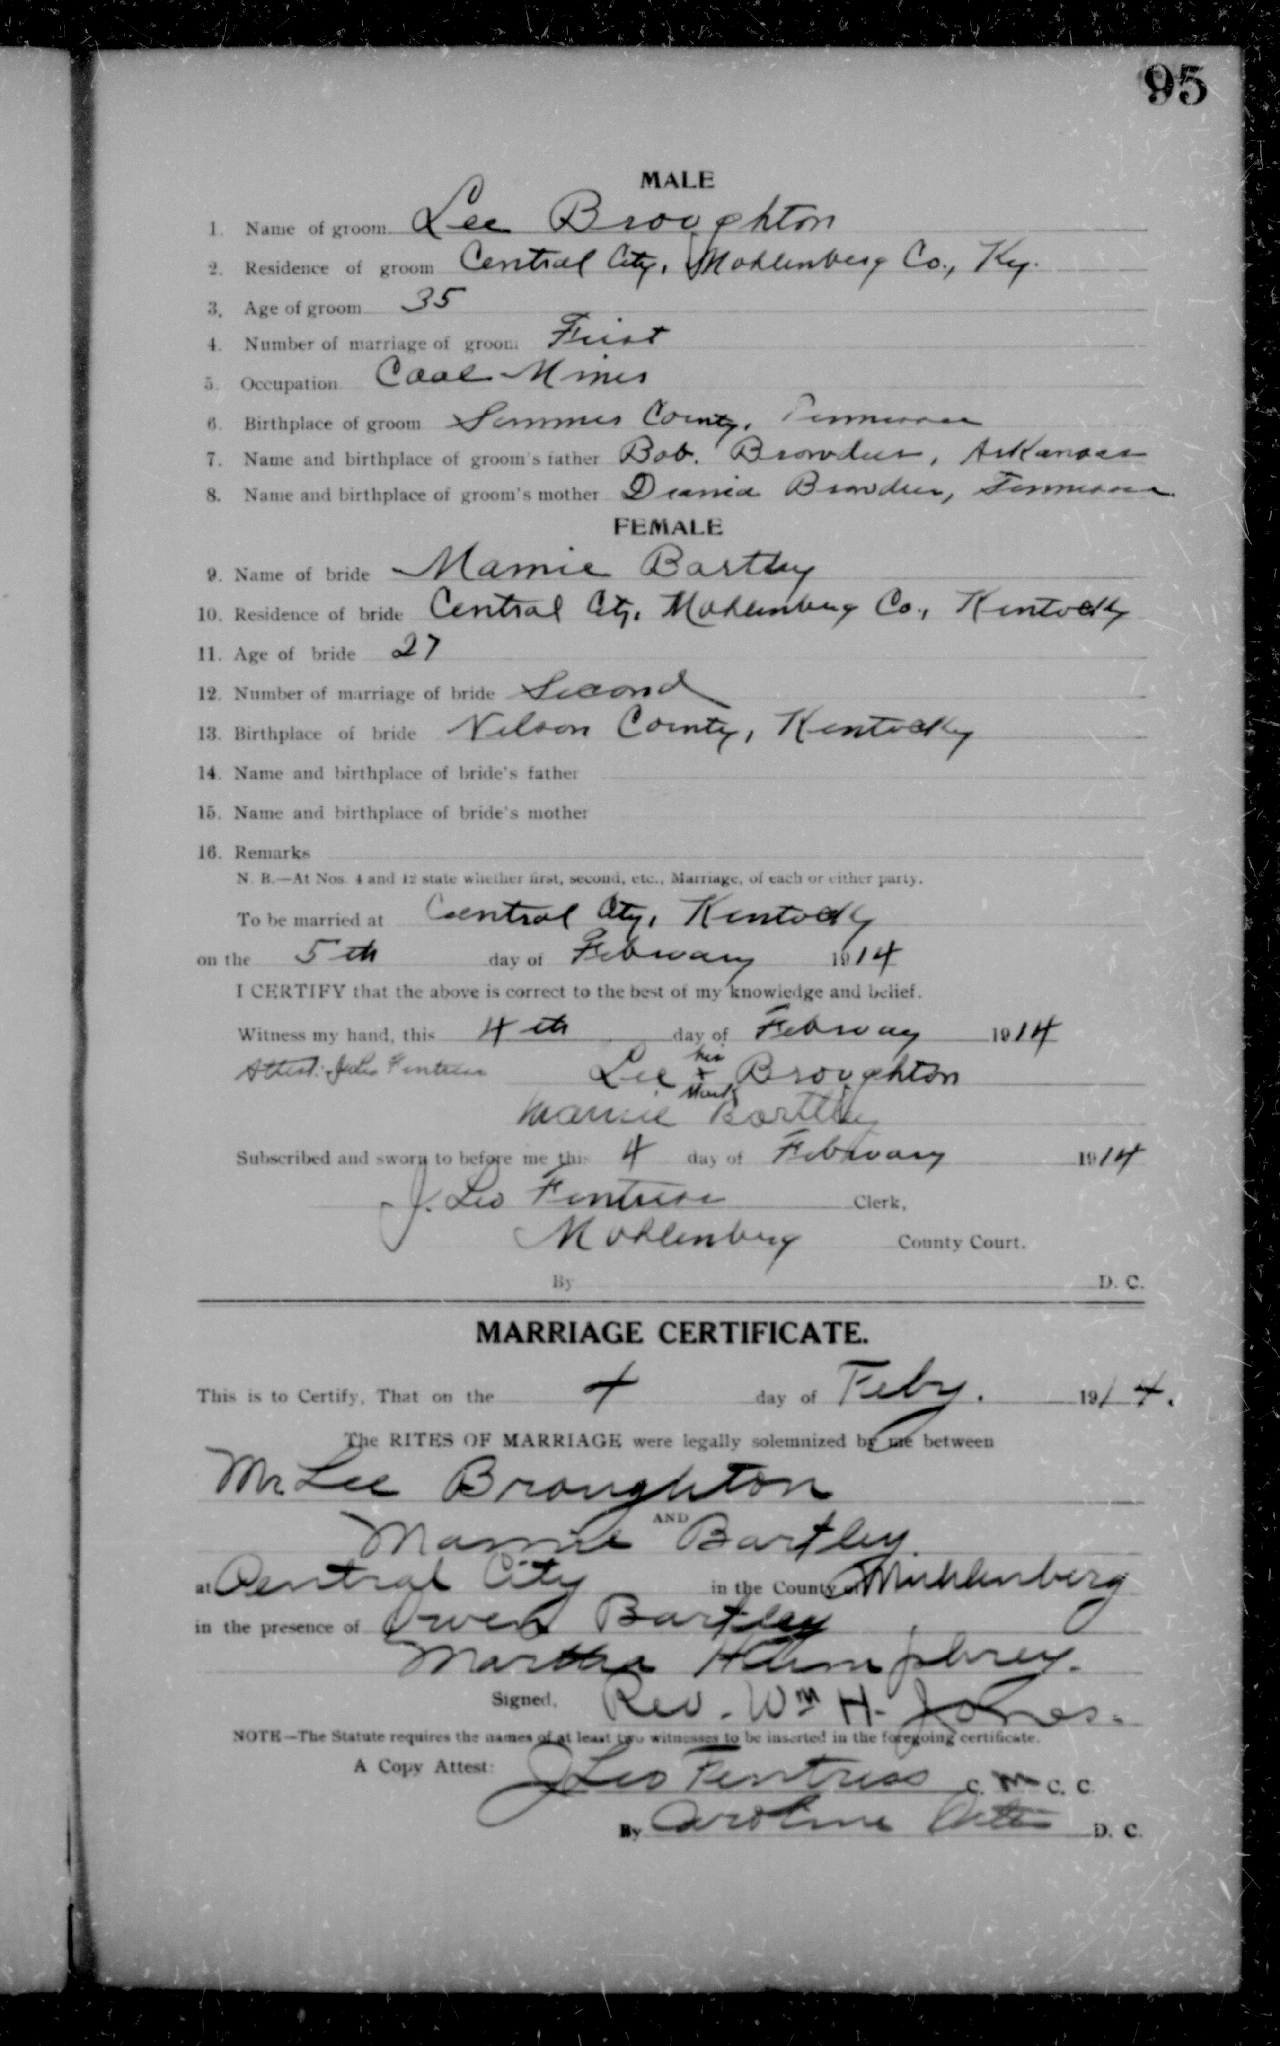 95
MALE
1. Name of groom Lee Broughton
2. Residence of groom Central City, Muhlenberg Co., Ky.
3. Age of groom 35
4. Number of marriage of groom First
5. Occupation Coal Miner
6. Birthplace of groom Sumner County, Tennessee
7. Name and birthplace of groom's father Bob. Browder, Arkansas
8. Name and birthplace of groom's mother Browder, Tennessee
FEMALE
9. Name of bride Mamie Bartley
10. Residence of bride Central City, Muhlenberg Co., Kentucky
11. Age of bride 27
12. Number of marriage of bride Second
13. Birthplace of bride Nelson County, Kentucky
14. Name and birthplace of bride's father
15. Name and birthplace of bride's mother
16. Remarks
N. B.—At Nos. 4 and 12 state whether first, second, etc., Marriage, of each or either party.
To be married at Central City, Kentucky
on the 5th day of February 1914
I CERTIFY that the above is correct to the best of my knowledge and belief.
Witness my hand, this 4th day of February 1914
Attest: Fentress Lee his x mark Broughton
Mamie Bartley
Subscribed and sworn to before me this 4 day of February 1914
J. Leo Fentress Clerk,
Muhlenberg County Court.
By D. C.
MARRIAGE CERTIFICATE.
This is to Certify, That on the 4 day of Feby. 1914.
The RITES OF MARRIAGE were legally solemnized by me between
Mr Lee Broughton
AND
Mamie Bartley.
at Central City in the County of Muhlenberg
in the presence of Owen Bartley
Martha Humphrey.
Signed, Rev. Wm H. Jones.
NOTE—The Statute requires the names of at least two witnesses to be inserted in the foregoing certificate.
A Copy Attest: J Leo Fentress C. M C. C.
By Caroline D. C.